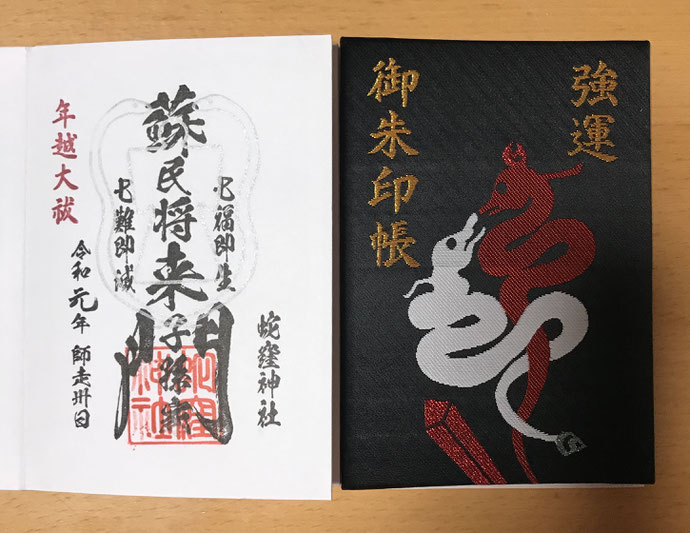 強運
御朱印帳
蛇窪神社
七福即生
蘇民将来子孫家門
七難即滅
年越大祓
令和元年 師走卅日